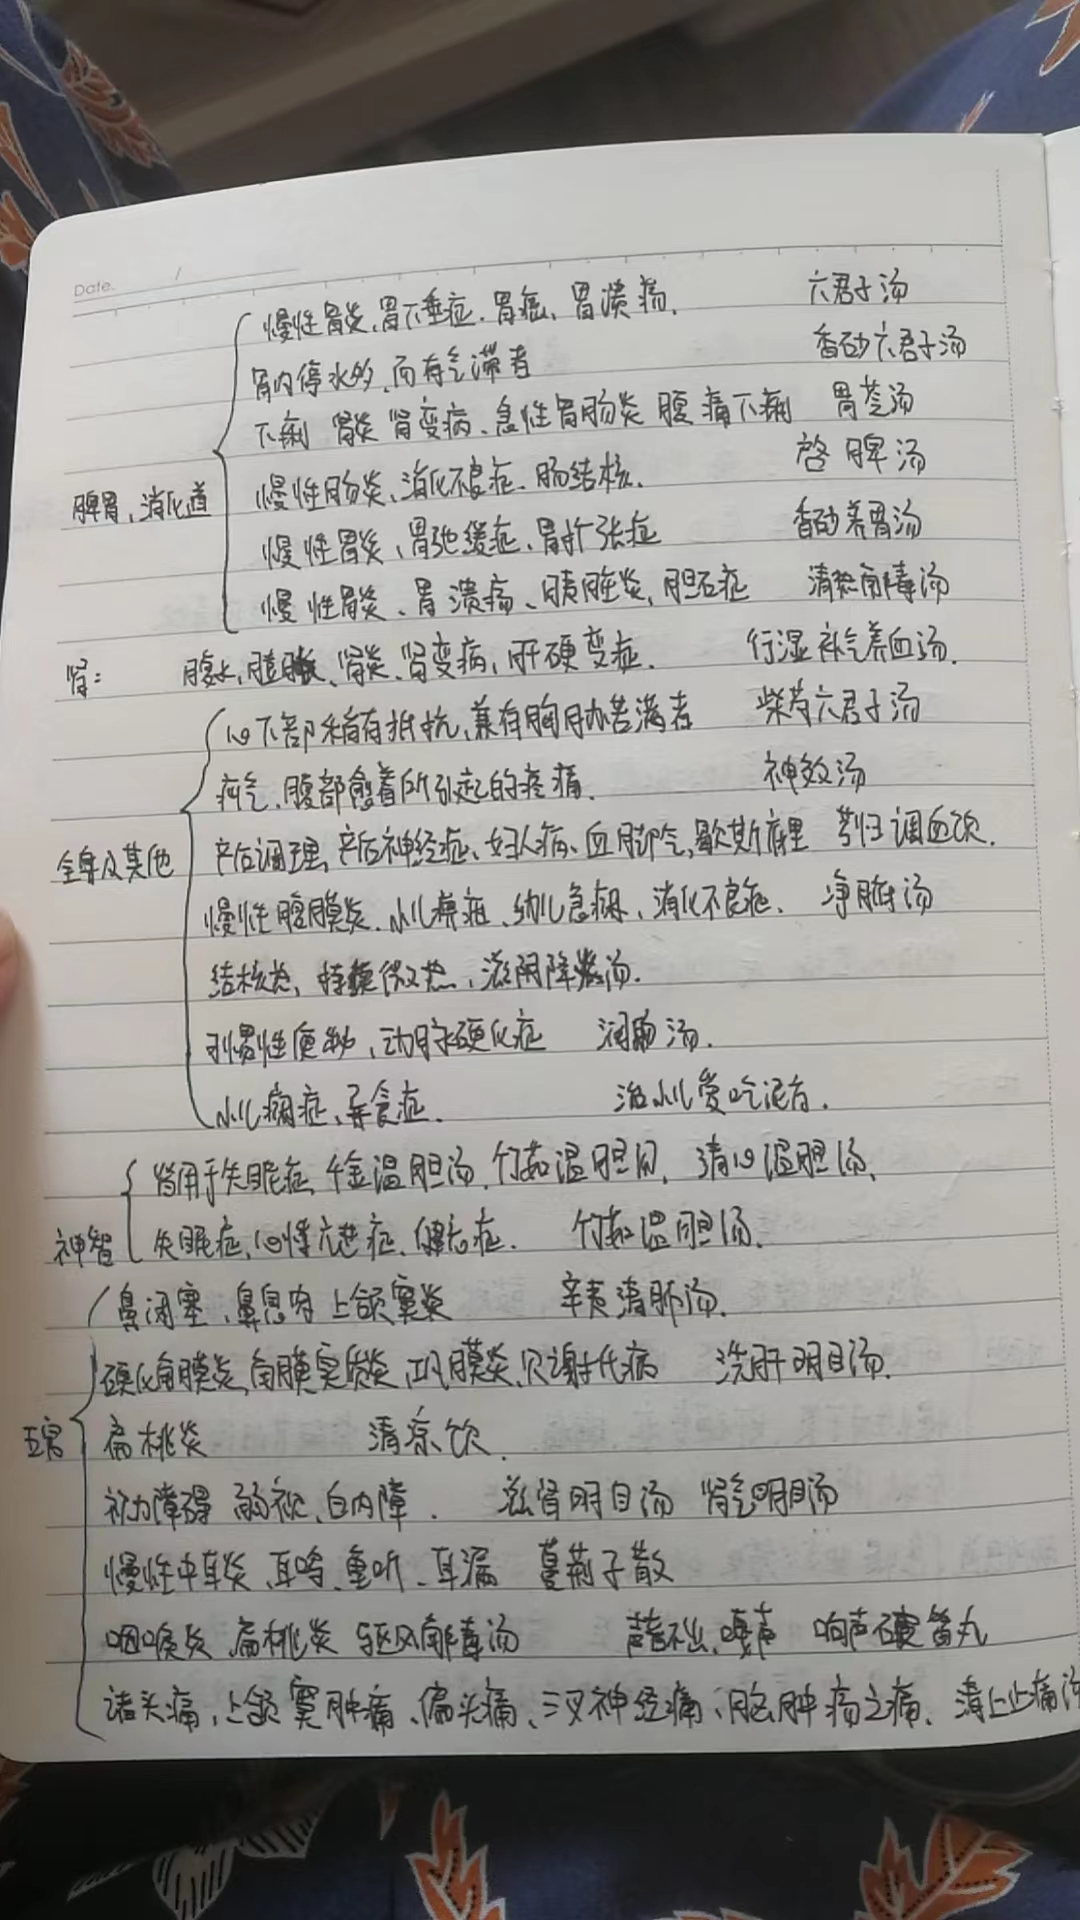 Date. /
慢性胃炎、胃下垂症、胃癌、胃溃疡. 六君子汤
胃内停水多、而有气滞者 香砂六君子汤
下痢 肾炎 肾变病、急性胃肠炎 腹痛下痢 胃苓汤
脾胃,消化道
慢性肠炎、消化不良症、肠结核. 启脾汤
慢性胃炎、胃弛缓症、胃扩张症 香砂养胃汤
慢性胃炎、胃溃疡、胰脏炎,胆石症 清热解毒汤
肾: 腹水,膨胀、肾炎、肾变病,肝硬变症. 行湿补气养血汤.
心下部稍有抵抗,兼有胸胁苦满者 柴芍六君子汤
疝气、腹部愈着所引起的疼痛. 神效汤
全身及其他
产后调理,产后神经症、妇人病、血脚气,歇斯底里 芎归调血饮.
慢性腹膜炎.小儿 幼儿急痫、消化不良症. 净腑汤
结核热,持续微热、滋阴降火汤.
习惯性便秘,动脉硬化症 润肠汤.
小儿癎症、异食症. 治小儿爱吃泥者.
神智
皆用于失眠症,千金温胆汤.竹茹温胆汤,清心温胆汤、
失眠症,心悸亢进症、健忘症. 竹茹温胆汤.
五官
鼻闭塞、鼻息肉 上颌窦炎 辛夷清肺汤.
硬化角膜炎,角膜实质炎, 洗肝明目汤.
扁桃炎 清凉饮.
视力障碍 弱视、白内障. 滋肾明目汤 肾气明目汤
慢性中耳炎、耳鸣、重听、耳漏 蔓荆子散
咽喉炎 扁桃炎 驱风解毒汤 声音不出,嘎声 响声破笛丸
诸头痛,上颌窦肿痛、偏头痛、三叉神经痛、脑肿疡之痛、清上止痛汤